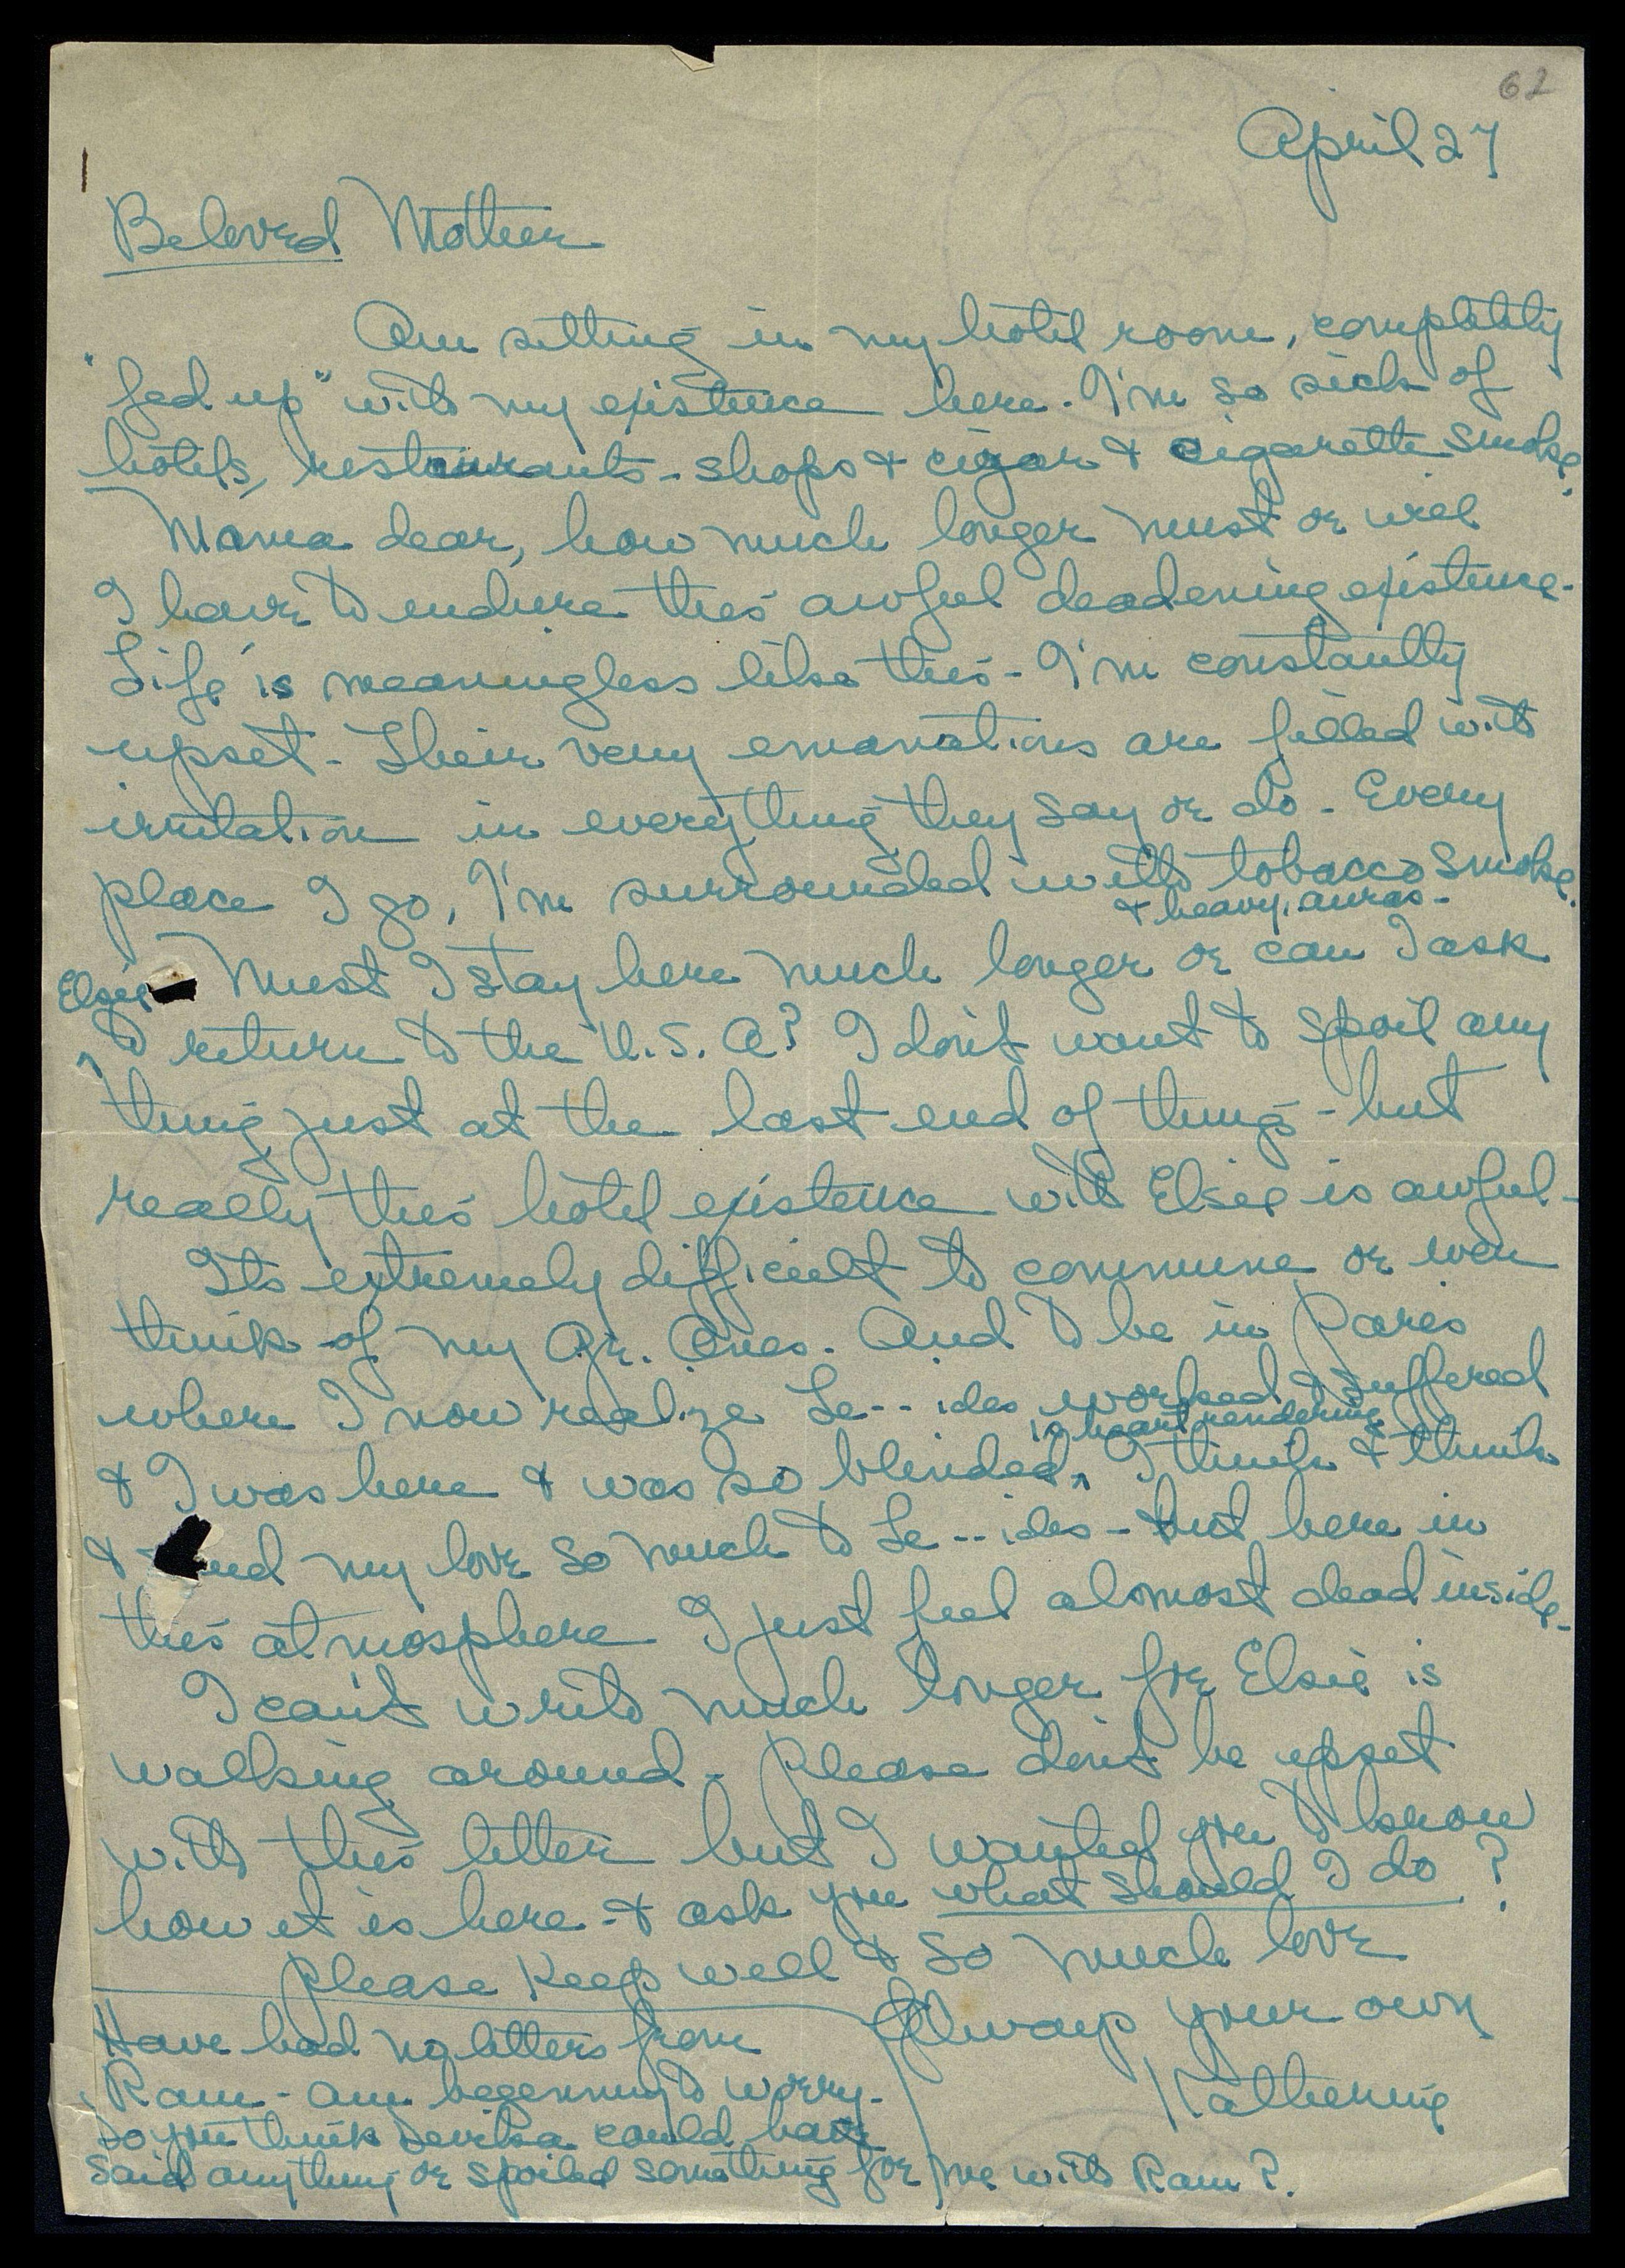 62
April 27
Beloved Mother
Am sitting in my hotel room, completely
"fed up" with my existence here. I'm so sick of
hotels, restaurants - shops & cigar & cigarette smoke.
Mama dear, how much longer must or will
I have to endure this awful deadening existence -
Life is meaningless like this - I'm constantly
upset - Their very emanations are filled with
irritation in everything they say or do - Every
place I go, I'm surrounded with tobacco smoke.
& heavy auras -
Must I stay here much longer or can I ask
Elsie
to return to the U.S.A? I don't want to spoil any
thing just at the last end of things - but
really this hotel existence with Elsie is awful -
Its extremely difficult to commune or even
think of my Gr. Ones. And to be in Paris
where I now realize Le--ides worked & suffered
is heart rendering
& I was here & was so blinded, I think & think
& my love so much to Le--ides - but here in
this atmosphere I just feel almost dead inside -
I can't write much longer for Elsie is
walking around - Please don't be upset
with this letter but I wanted you to know
how it is here - & ask you what should I do ?
Please keep well & so much love
Always your own
Katherine
Have had no letters from
Ram - am beginning to worry -
Do you think could have
said anything or spoiled something for me with Ram ?